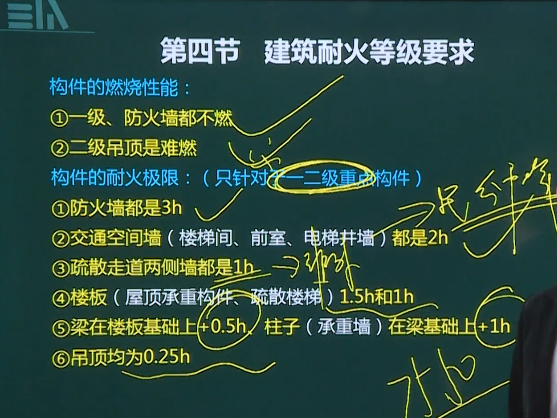 第四节 建筑耐火等级要求
构件的燃烧性能：
①一级、防火墙都不燃
②二级吊顶是难燃
构件的耐火极限：（只针对于一二级重点构件）
①防火墙都是3h
②交通空间墙（楼梯间、前室、电梯井墙）都是2h
③疏散走道两侧墙都是1h
④楼板（屋顶承重构件、疏散楼梯）1.5h和1h
⑤梁在楼板基础上+0.5h、柱子（承重墙）在梁基础上+1h
⑥吊顶均为0.25h